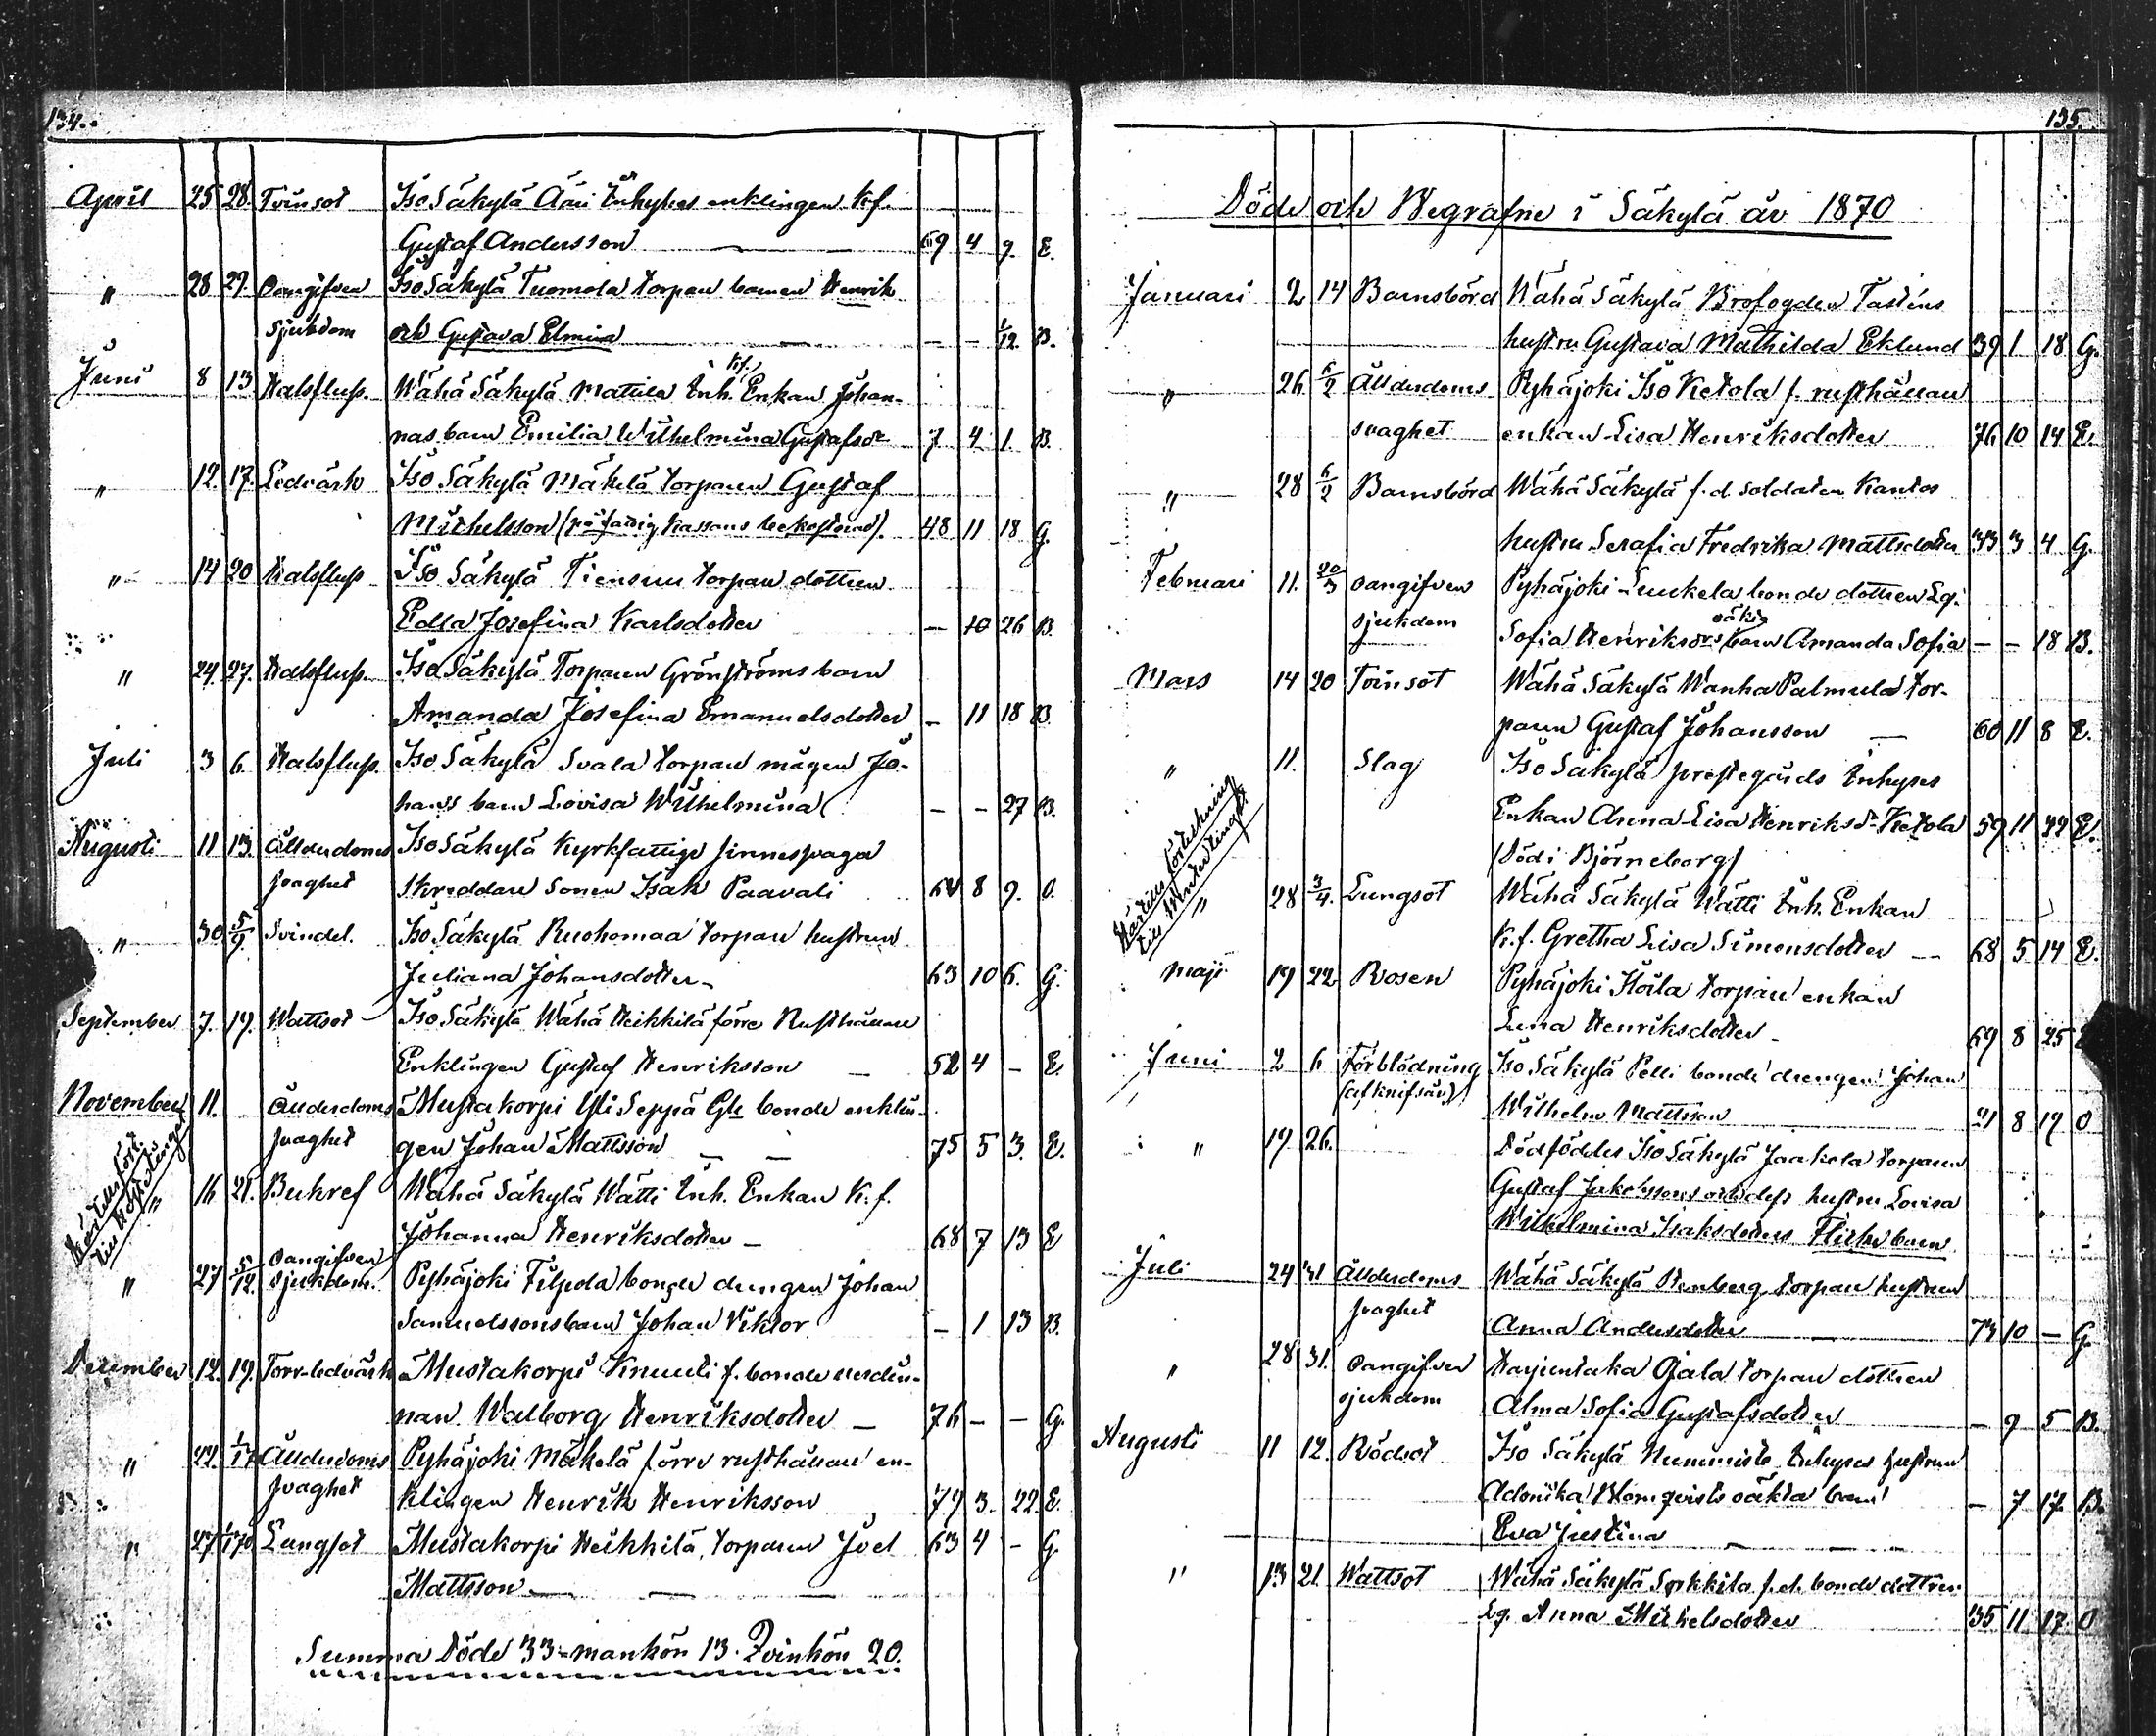 134.
April 25 28. Tvinsot Iso Säkylä Ääri Inhyses enklingen k.f.
Gustaf Andersson 69 4 9. E.
" 28 27. Oangifven Iso Säkylä Tuomola torpau barnen Henrik
sjukdom och Gustava Elmina — — 1/12. B.
Juni 8 13 Halsfluss. Wähä Säkylä Mattila Inh. k.f. Enkan Johan-
nas barn Emilia Wilhelmina Gustafsdr 7 4 1. B.
" 12. 17. Ledvärk Iso Säkylä Mäkelä torparen Gustaf
Michelsson (på fattig kassans bekostnad). 48 11 18 G.
" 14 20 Halsfluss Iso Säkylä Tiensuu torpau dottren
Edla Josefina Karlsdotter — 10 26 B.
" 24. 27. Halsfluss. Iso Säkylä Torparen Grönströms barn
Amanda Josefina Emanuelsdotter — 11 18 B.
Juli 3 6. Halsfluss. Iso Säkylä Svala torpau mågen Jo-
hans barn Lovisa Wilhelmina — — 27 B.
Augusti 11 13. Ållderdoms Iso Säkylä Kyrkfattige
svaghet Skreddare sonen Isak Paavali 64 8 9. O.
" 30 5/9. Svindel. Iso Säkylä Ruohomaa torpau hustrun
Juliana Johansdotter 63 10 6. G.
September 7. 19. Wattsot Iso Säkylä Wähä Heikkilä förre Rusthållare
Enklingen Gustaf Henriksson 52 4 — E.
November 11. Ållderdoms Mustakorpi Yli Seppä Gl. bonde enklin-
svaghet gen Johan Mattsson 75 5 3. E.
16 21. Bukref Wähä Säkylä Wätti Inh. Enkan K.f.
Johanna Henriksdotter 68 7 13 E
" 27 5/12. Oangifven sjukdom. Pyhäjoki Filpola bonde drengen Johan
Samuelssons barn Johan Viktor — 1 13 B.
December 12. 19. Torr-ledvärk Mustakorpi Knuuti f. bonde
nan Walborg Henriksdotter 76 — — G.
" 22. Ållderdoms Pyhäjoki Mäkelä förre rusthållare en-
svaghet klingen Henrik Henriksson 77 3. 22. E.
" 27 Lungsot Mustakorpi Heikkilä, torparen Joel 63 4 — G.
Mattsson
Summa Döde 33 = mankön 13. Qvinkön 20.
135.
Döde och Begrafne i Säkylä år 1870
Januari 2 14 Barnsbörd Wähä Säkylä Brofogden Tasténs
hustru Gustava Mathilda Eklund 39 1 18 G.
" 26. 6/2 Ållderdoms Pyhäjoki Iso Ketola f. rusthållare
svaghet enkan Lisa Henriksdotter 76 10 14 E.
" 28 6/2 Barnsbörd Wähä Säkylä f.d. soldaten Kantos
hustru Serafia Fredrika Mattsdotter 33 3 4 G.
Februari 11. 20/3 oangifven Pyhäjoki Luukela bonde dottren Lg.
sjukdom Sofia Henriksdrs oäkta barn Amanda Sofia — — 18 B.
Mars 14 20 Tvinsot Wähä Säkylä Wanha Palmula tor-
paren Gustaf Johansson 60 11 8 E.
" 11. Slag Iso Säkylä prestegårds Inhyses
Enkan Anna Lisa Henriksdr Ketola 59 11 22 E.
(Död i Björneborg)
" 28 3/4. Lungsot Wähä Säkylä Wätti Inh. Enkan
k.f. Gretha Lisa Simonsdotter 68 5 14 E.
Maji 19 22 Rosen Pyhäjoki Hoila torpau enkan
Lena Henriksdotter 69 8 25
Juni 2 6 Förblödning Iso Säkylä Pelli bonde drengen Johan
(af knifsår) Wilhelm Mattsson 21 8 17 O
" 19 26. Dödföddes Iso Säkylä Jaakola torparen
Gustaf Jakobssons och dess hustru Lovisa
Wilhelmina Isaksdotters Flicke barn
Juli 24 31 Ållderdoms Wähä Säkylä Stenberg torpau hustrun
svaghet Anna Andersdotter 73 10 — G
" 28 31. oangifven Harjuntaka Ojala torpau dottren
sjukdom Alma Sofia Gustafsdotter — 9 5 B.
Augusti 11 12. Rödsot Iso Säkylä Nummisto Inhyses hustrun
Blomqvists oäkta barn — 7 17. B.
Eva Justina
" 13 21. Wattsot Wähä Säkylä Sorkkila f.d. bonde dottren
Lg. Anna Michelsdotter 35 11 17. O